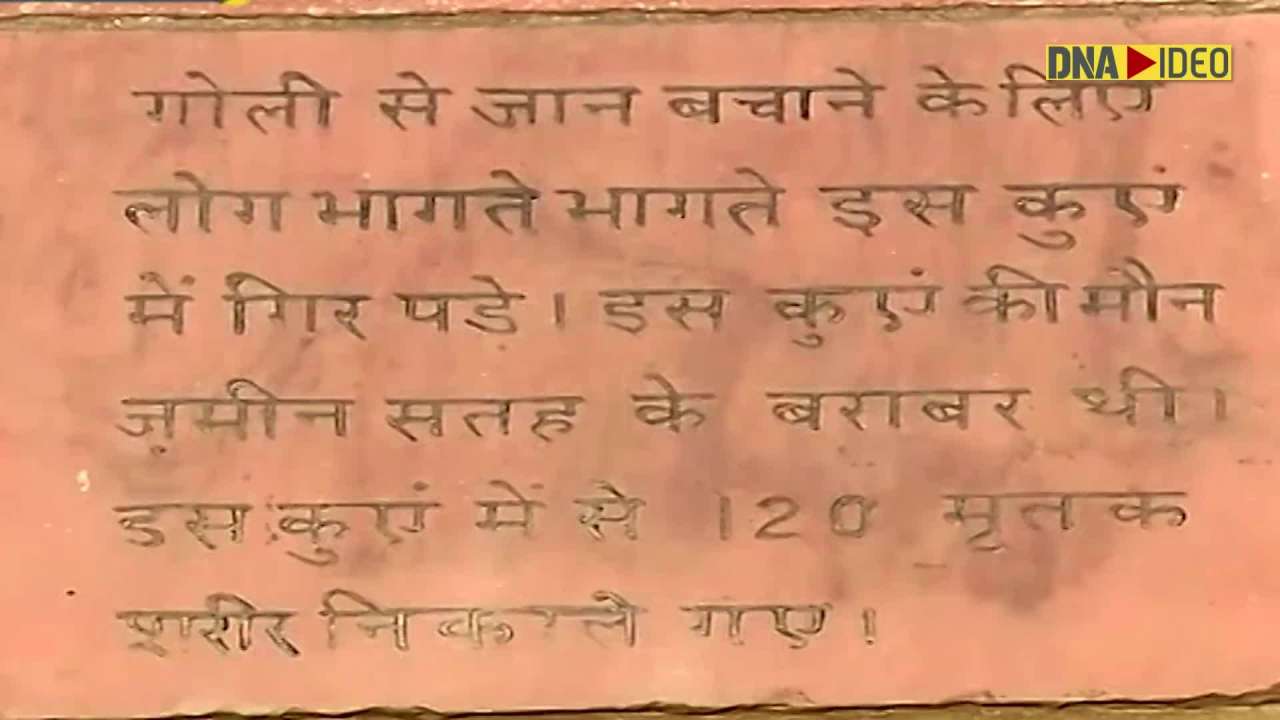 DNA VIDEO
गोली से जान बचाने के लिए
लोग भागते भागते इस कुएं
में गिर पड़े। इस कुएं की मौन
ज़मीन सतह के बराबर थी।
इस कुएं में से 120 मृतक
शरीर निकाले गए।